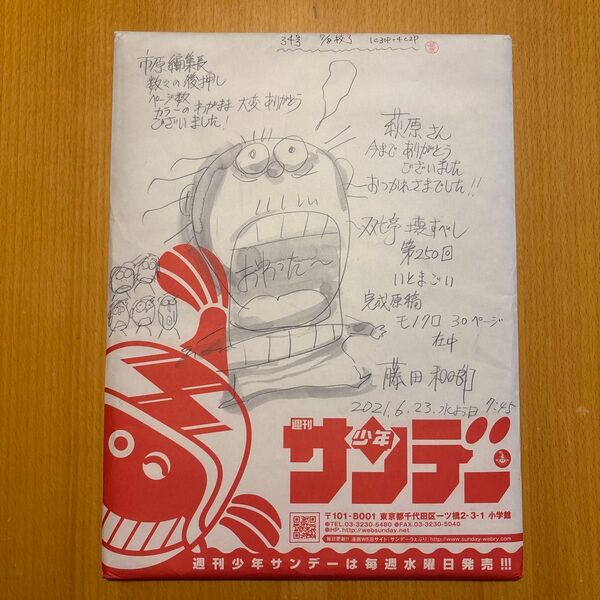 34号 7/8校了 1C30P+4C2P
市原編集長
数々の後押し
ページ数
カラーのわがまま 大変ありがとう
ございました!
萩原さん
今までありがとう
ございました
おつかれさまでした!!
おわった〜
双亡亭 壊すべし
第250回
いとまごい
完成原稿
モノクロ 30ページ
在中
藤田和日郎
2021.6.23.水よう日 7:45
週刊
少年
サンデー
〒101-8001 東京都千代田区一ツ橋2-3-1 小学館
●TEL.03-3230-5480 ●FAX.03-3230-5040
●HP. http://websunday.net
毎日更新!! 漫画WEBサイト[サンデーうぇぶり] http://www.sunday-webry.com
週刊少年サンデーは毎週水曜日発売!!!